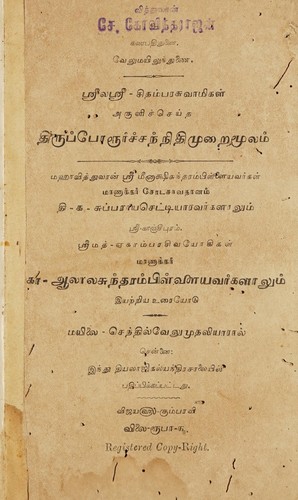 வித்துவான்
சே. கோவிந்தராஜன்
கணபதிதுணை.
வேலுமயிலுந்துணை.
ஸ்ரீலஸ்ரீ - சிதம்பரசுவாமிகள்
அருளிச்செய்த
திருப்போரூர்ச்சந்நிதிமுறைமூலம்
மஹாவித்துவான் ஸ்ரீ மீனாக்ஷிசுந்தரம்பிள்ளையவர்கள்
மாணாக்கர் சோடசாவதானம்
தி - க - சுப்பராயசெட்டியாரவர்களாலும்
ஸ்ரீகாஞ்சிபுரம்
ஸ்ரீமத் - ஏகாம்பரசிவயோகிகள்
மாணாக்கர்
கா - ஆலாலசுந்தரம்பிள்ளையவர்களாலும்
இயற்றிய உரையோடு
மயிலை - செந்தில்வேலுமுதலியாரால்
சென்னை:
இந்து தியலாஜிகல்யந்திரசாலையில்
பதிப்பிக்கப்பட்டது.
விலை-ரூபா-
Registered Copy-Right.